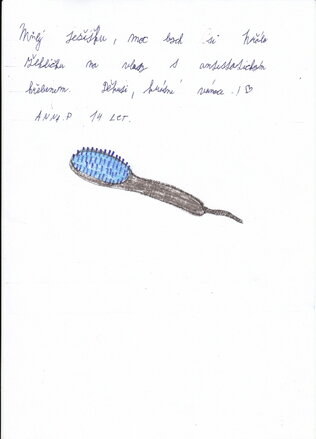 Milý Ježíšku, moc bych si přála
žehličku na vlasy s antistatickým
hřebenem. Děkuji, krásné vánoce. :) ♡
ANNA.P 14 LET.